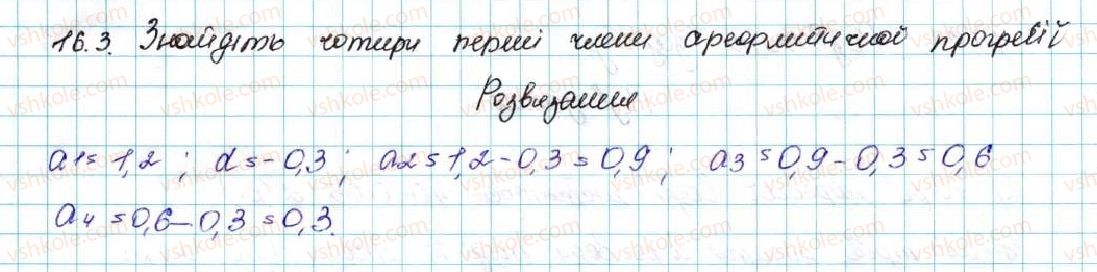 16.3. Знайдіть чотири перші члени арефмитичной прогресії
Розвязання
a1 = 1,2 ; d = -0,3 ; a2 = 1,2 - 0,3 = 0,9 ; a3 = 0,9 - 0,3 = 0,6
a4 = 0,6 - 0,3 = 0,3.